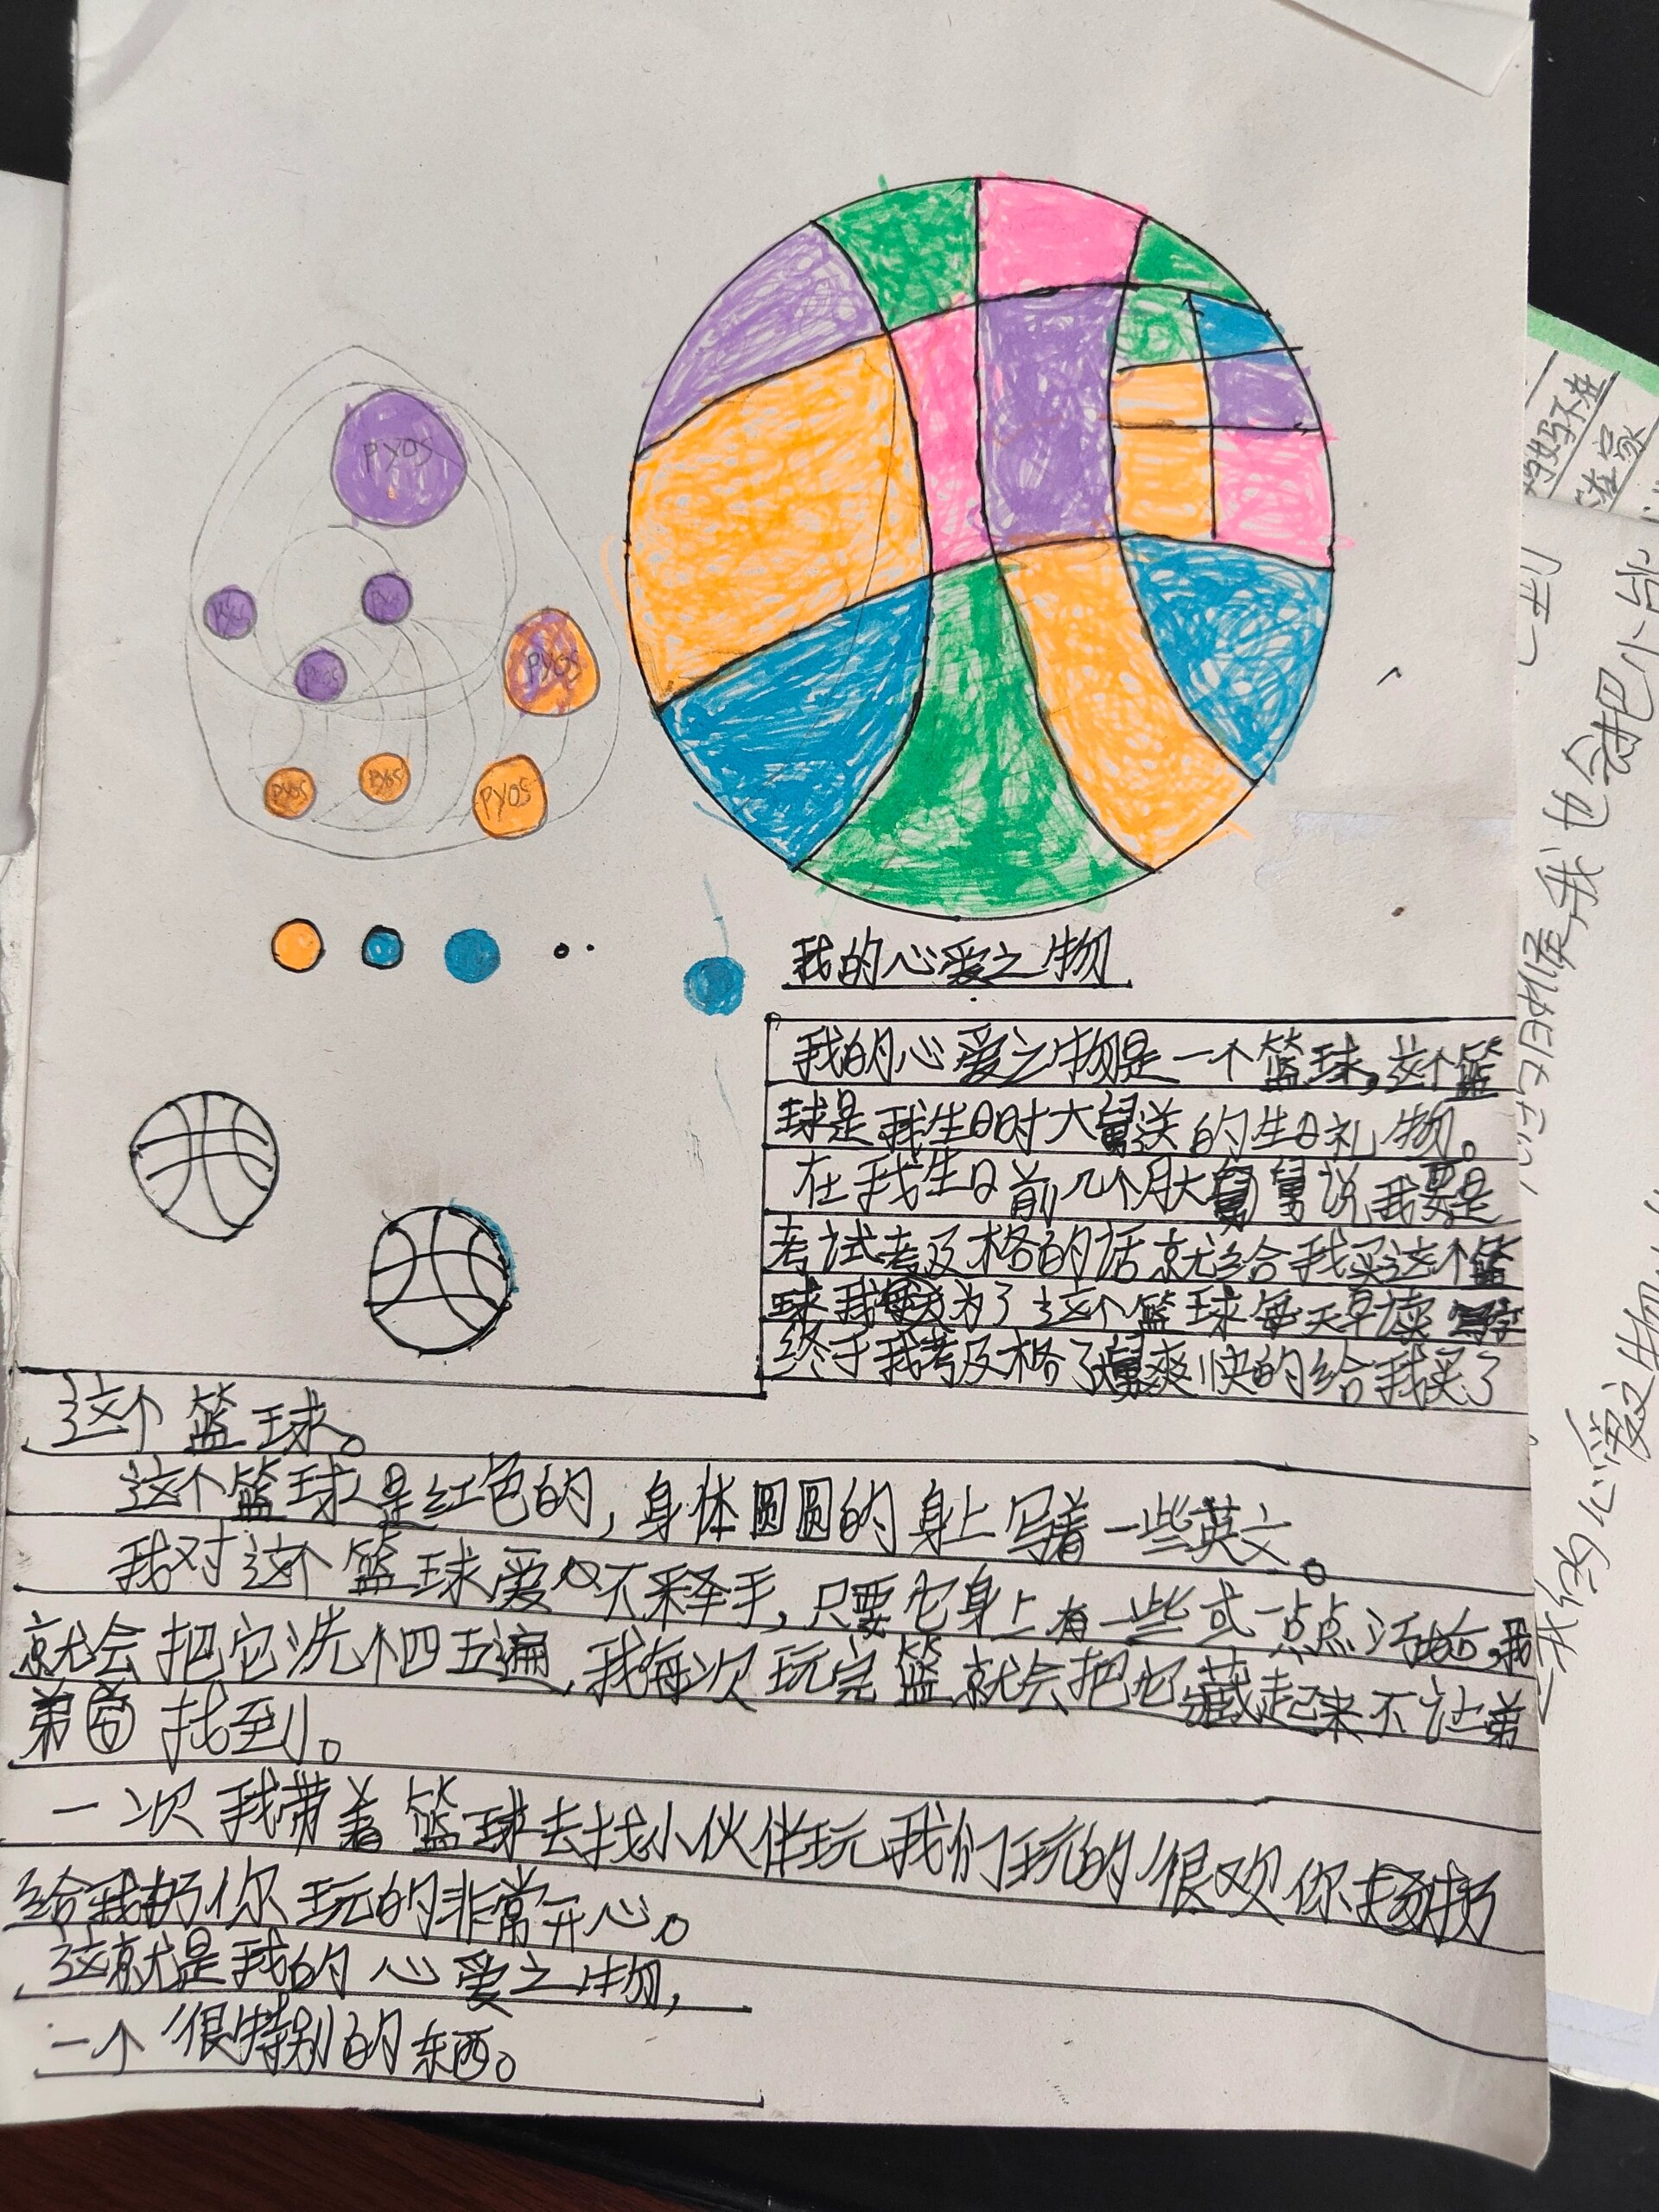 PYOS
PYOS
PYOS
PYOS
PYOS
PYOS
PYOS
PYOS
我的心爱之物
我的心爱之物是一个篮球,这个篮
球是我生日时大舅送的生日礼物。
在我生日前几个月大舅舅说,我要是
考试考及格的话就给我买这个篮
球我为了这个篮球每天早读
终于我考及格了舅爽快的给我买了
这个篮球。
这个篮球是红色的,身体圆圆的身上写着一些英文。
我对这个篮球爱不释手,只要它身上有一些或一点点污,我
就会把它洗个四五遍,我每次玩完篮就会把它藏起来不让弟
弟找到。
一次我带着篮球去找小伙伴玩,我们玩的很欢你扔
给我扔你玩的非常开心。
这就是我的心爱之物,
一个很特别的东西。
我也会把小
的心爱之物